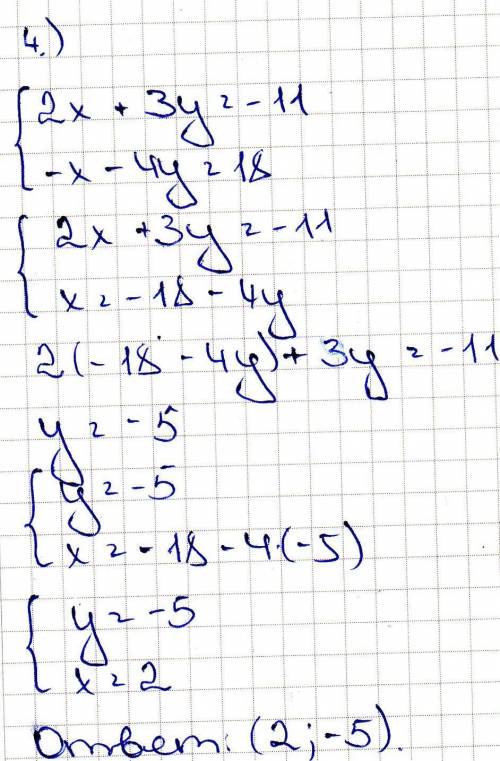 4.)
{ 2x + 3y = -11
-x - 4y = 18
{ 2x + 3y = -11
x = -18 - 4y
2(-18 - 4y) + 3y = -11
y = -5
{ y = -5
x = -18 - 4·(-5)
{ y = -5
x = 2
Ответ: (2; -5).